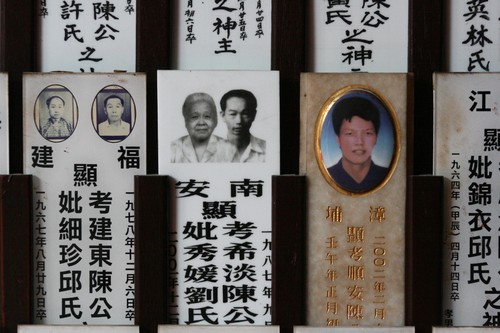 陳公
許氏
之
之神主
陳公
黃氏
之神
英林氏
福建
顯
一九七八年十二月六日卒
考建東陳公
妣細珍邱氏
一九六七年八月廿九日卒
南安
顯
一九八七年
考希淡陳公
妣秀媛劉氏
漳埔
二〇〇二年二月
顯考順安陳
壬午年正月
江
妣錦衣邱氏
一九六四年(甲辰)四月十四日卒